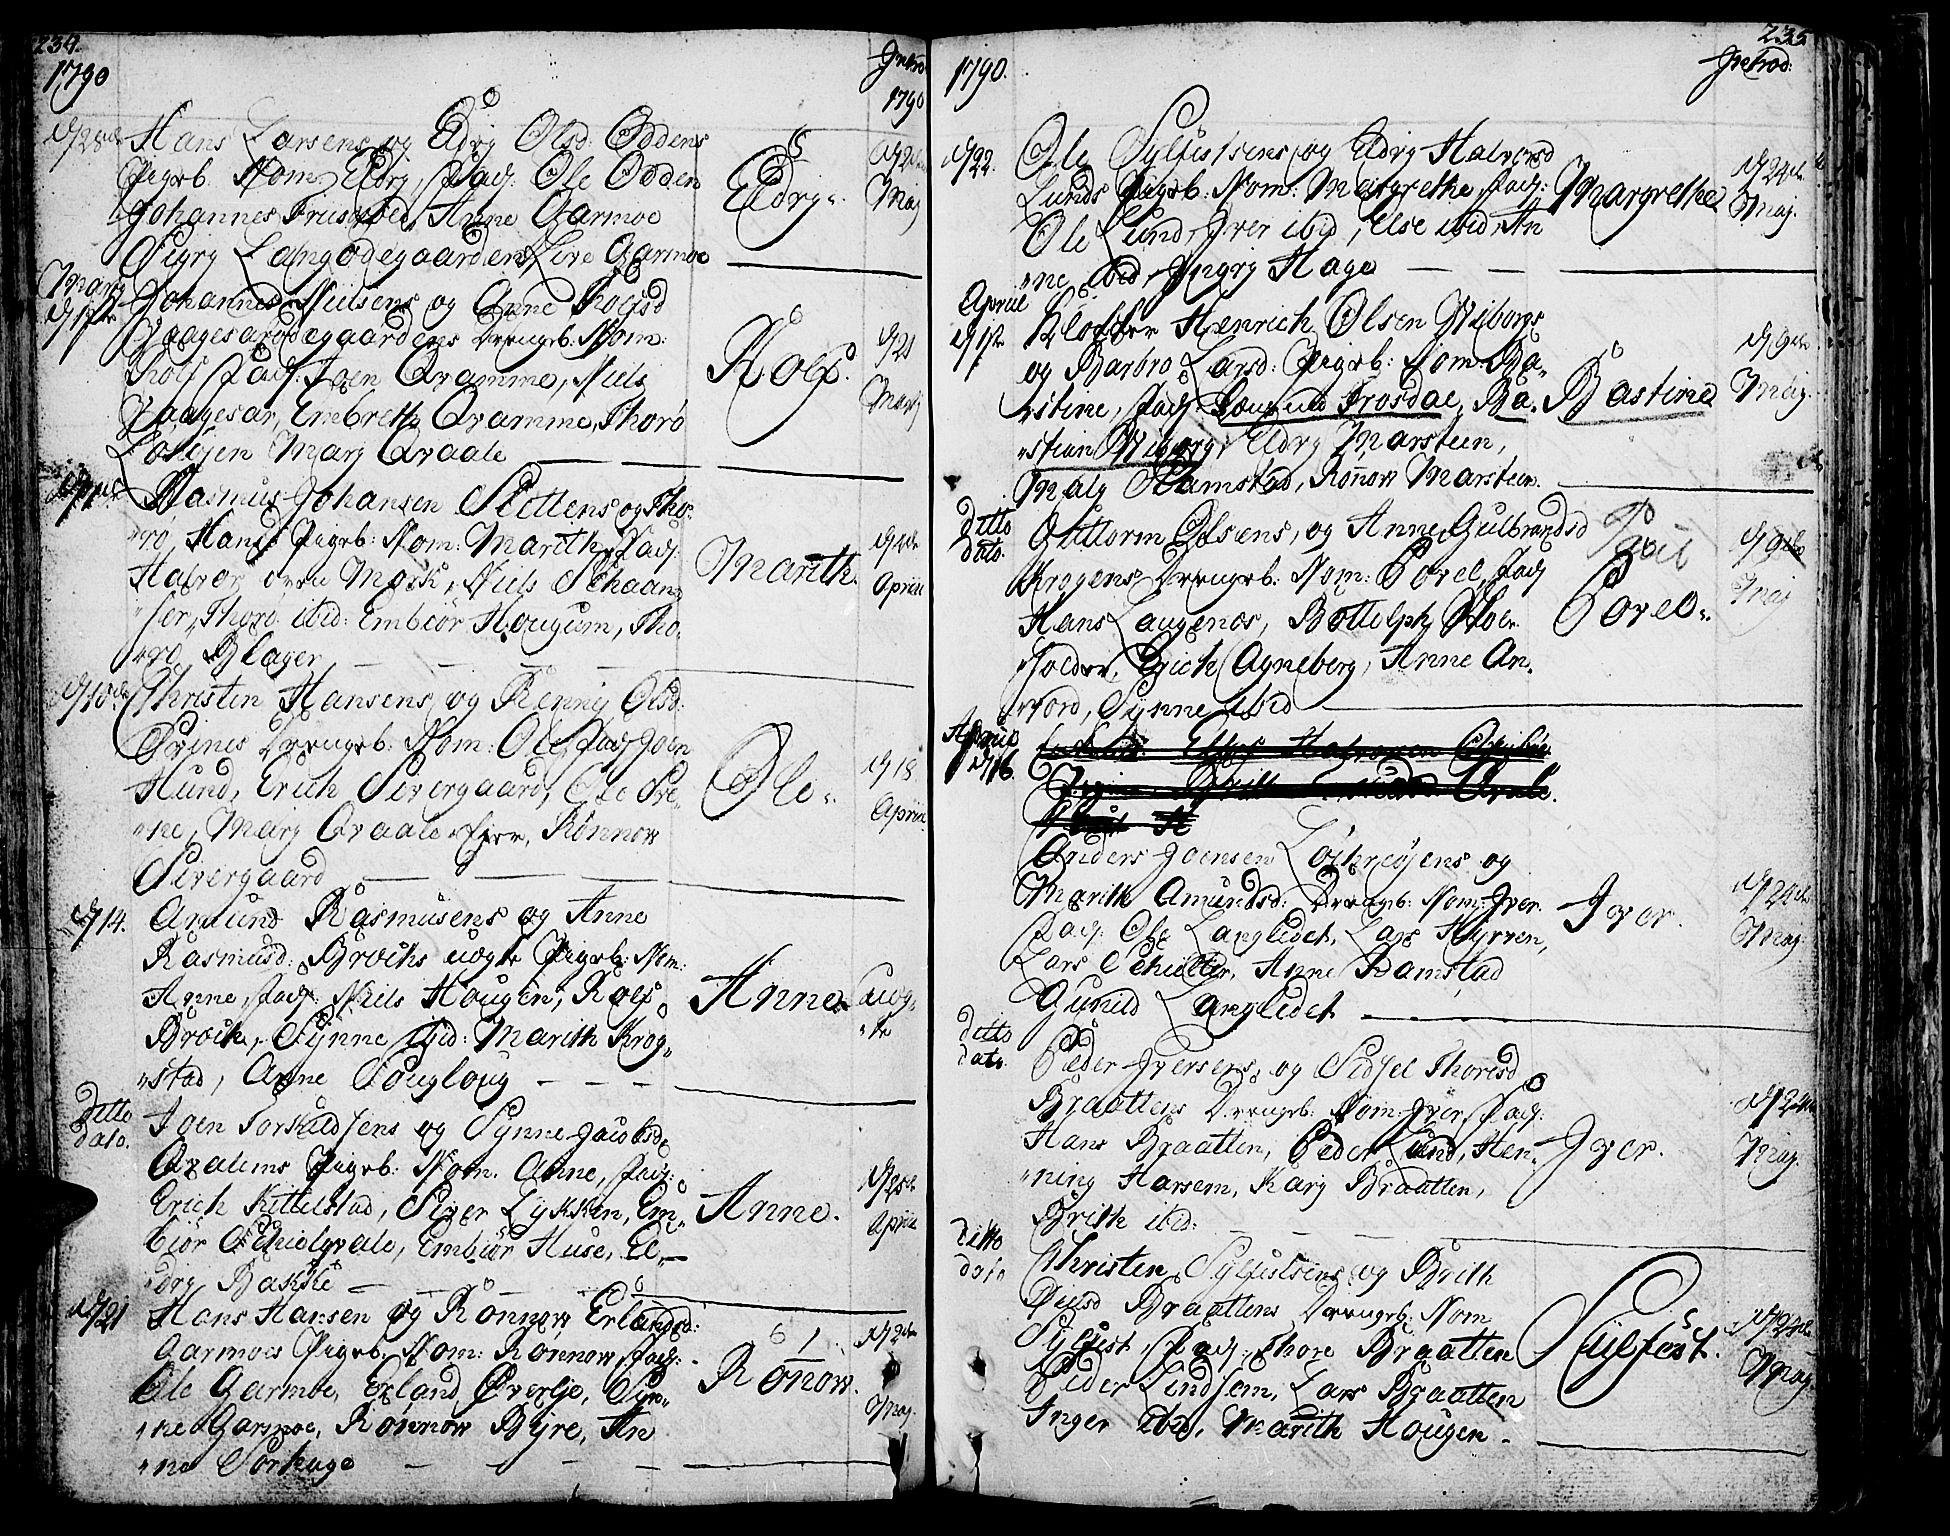 234.
1790
Introd
1790
d 28de Hans Larsens og Eldrj Olsd: Oddens
Pigeb. Nom: Eldrj, Fad: Ole Odden
Johannes ibid, Anne Garmoe
Sigrj Langødegaarden, Live Garmoe
Eldrj
d 2den
Maj
Martj
d 17de Johannes Nielsens og Anne Rolfsd
Vaagesarødegaardens Drengeb: Nom:
Rolf Fad: Joen Qvamme, Niels
Vaagesar, Embreth Qvamme, Thorø
Løkøjen Marj Qvaale
Rolf.
d 21
Martj
Rasmus Johansen Slettens og Tho-
rø Hansd Pigeb: Nom: Marith, Fad:
Halvor øvre Mork, Niels Schaan-
ser, Thorø ibid: Embiør Hougum, Tho-
rø Blager
Marith.
d 4de
Apriil
d 10de Christen Hansens og Rennj Olsd:
Svines Drengeb: Nom: Ole, Fad: Joen
Hund, Erich Sivergaard, Ole Svi-
ne, Marj Qvaale, Rønnow
Sivergaard
Ole.
d 18
Apriil
d 14. Amund Rasmusens og Anne
Rasmusd: Brøchs uægte Pigeb: Nom:
Anne, Fad: Niels Hougen, Rolf
Brøch, Synne ibid: Marith Krog-
stad, Anne Sougloug
Anne
uæg-
te
Ditto
dato. Joen Torkildsens og Synne Jacobsd:
Qvalems Pigeb: Nom. Anne, Fad:
Erich Kittelstad, Siver Lykken, Em-
biør Schielqvale, Embiør Huse, El-
drj Bakke
Anne.
d 25de
Apriil
d 21 Hans Hansen og Rønnow Erlandsd:
Garmoes Pigeb. Nom: Rønnow, Fad:
Ole Garmoe, Erland Øverlie, Syn-
ne Garmoe, Rønnow Byre, An
ne Sørhage
6 1
Rønow.
d 2den
Maj.
235
1790.
Introd:
d 22. Ole Sylfestsens og Eldrj Halvorsd
Lunds Pigeb: Nom: Margrethe, Fad:
Ole Lund, Iver ibid, Else ibid, An
ne ibid, Ingrj Hage
Margrethe
d 24de
Maj.
Apriil
d 1ste Klokker Henrich Olsen Wiborgs
og Barbro Larsd: Pigeb: Nom: Ba-
stine, Fad: Frosdae, Ba-
stian Wiborg, Eldrj Marsteen,
Malj Ramstad, Rønow Marsteen.
Bastine
d 9de
Maj.
Ditto
dato. Guttorm Olsens, og Anne Gulbrandsd
Krogens Drengeb: Nom: Povel, Fad:
Hans Laugenæs, Bottolph
Erich Agneberg, Anne An-
vord, Synne ibid
Povel.
d 9de
Maj
Apriil
d 16. Halvorsen
Anders Joensen Løkreøjens og
Marith Amundsd: Drengeb: Nom: Iver.
Fad: Ole Langledet, Lars Hyrven,
Lars Schutter, Anne Ramstad
Gunild Langledet
Iver.
d 24de
Maj:
Ditto
dato. Peder Iversens, og Sidsel Thoresd
Braattens Drengeb: Nom: Iver, Fad:
Hans Braatten, Peder Lund, Hen-
ning Harsem, Karj Braatten,
Brith ibid:
Iver.
d 24de
Maj.
Ditto
dato Christen Sylfestsens og Brith
Braattens Drengeb: Nom
Sylfest, Fad: Thore Braatten
Peder Lindsem, Lars Braatten
Inger ibid, Marith Hougen
Sylfest.
d 24de
Maj.